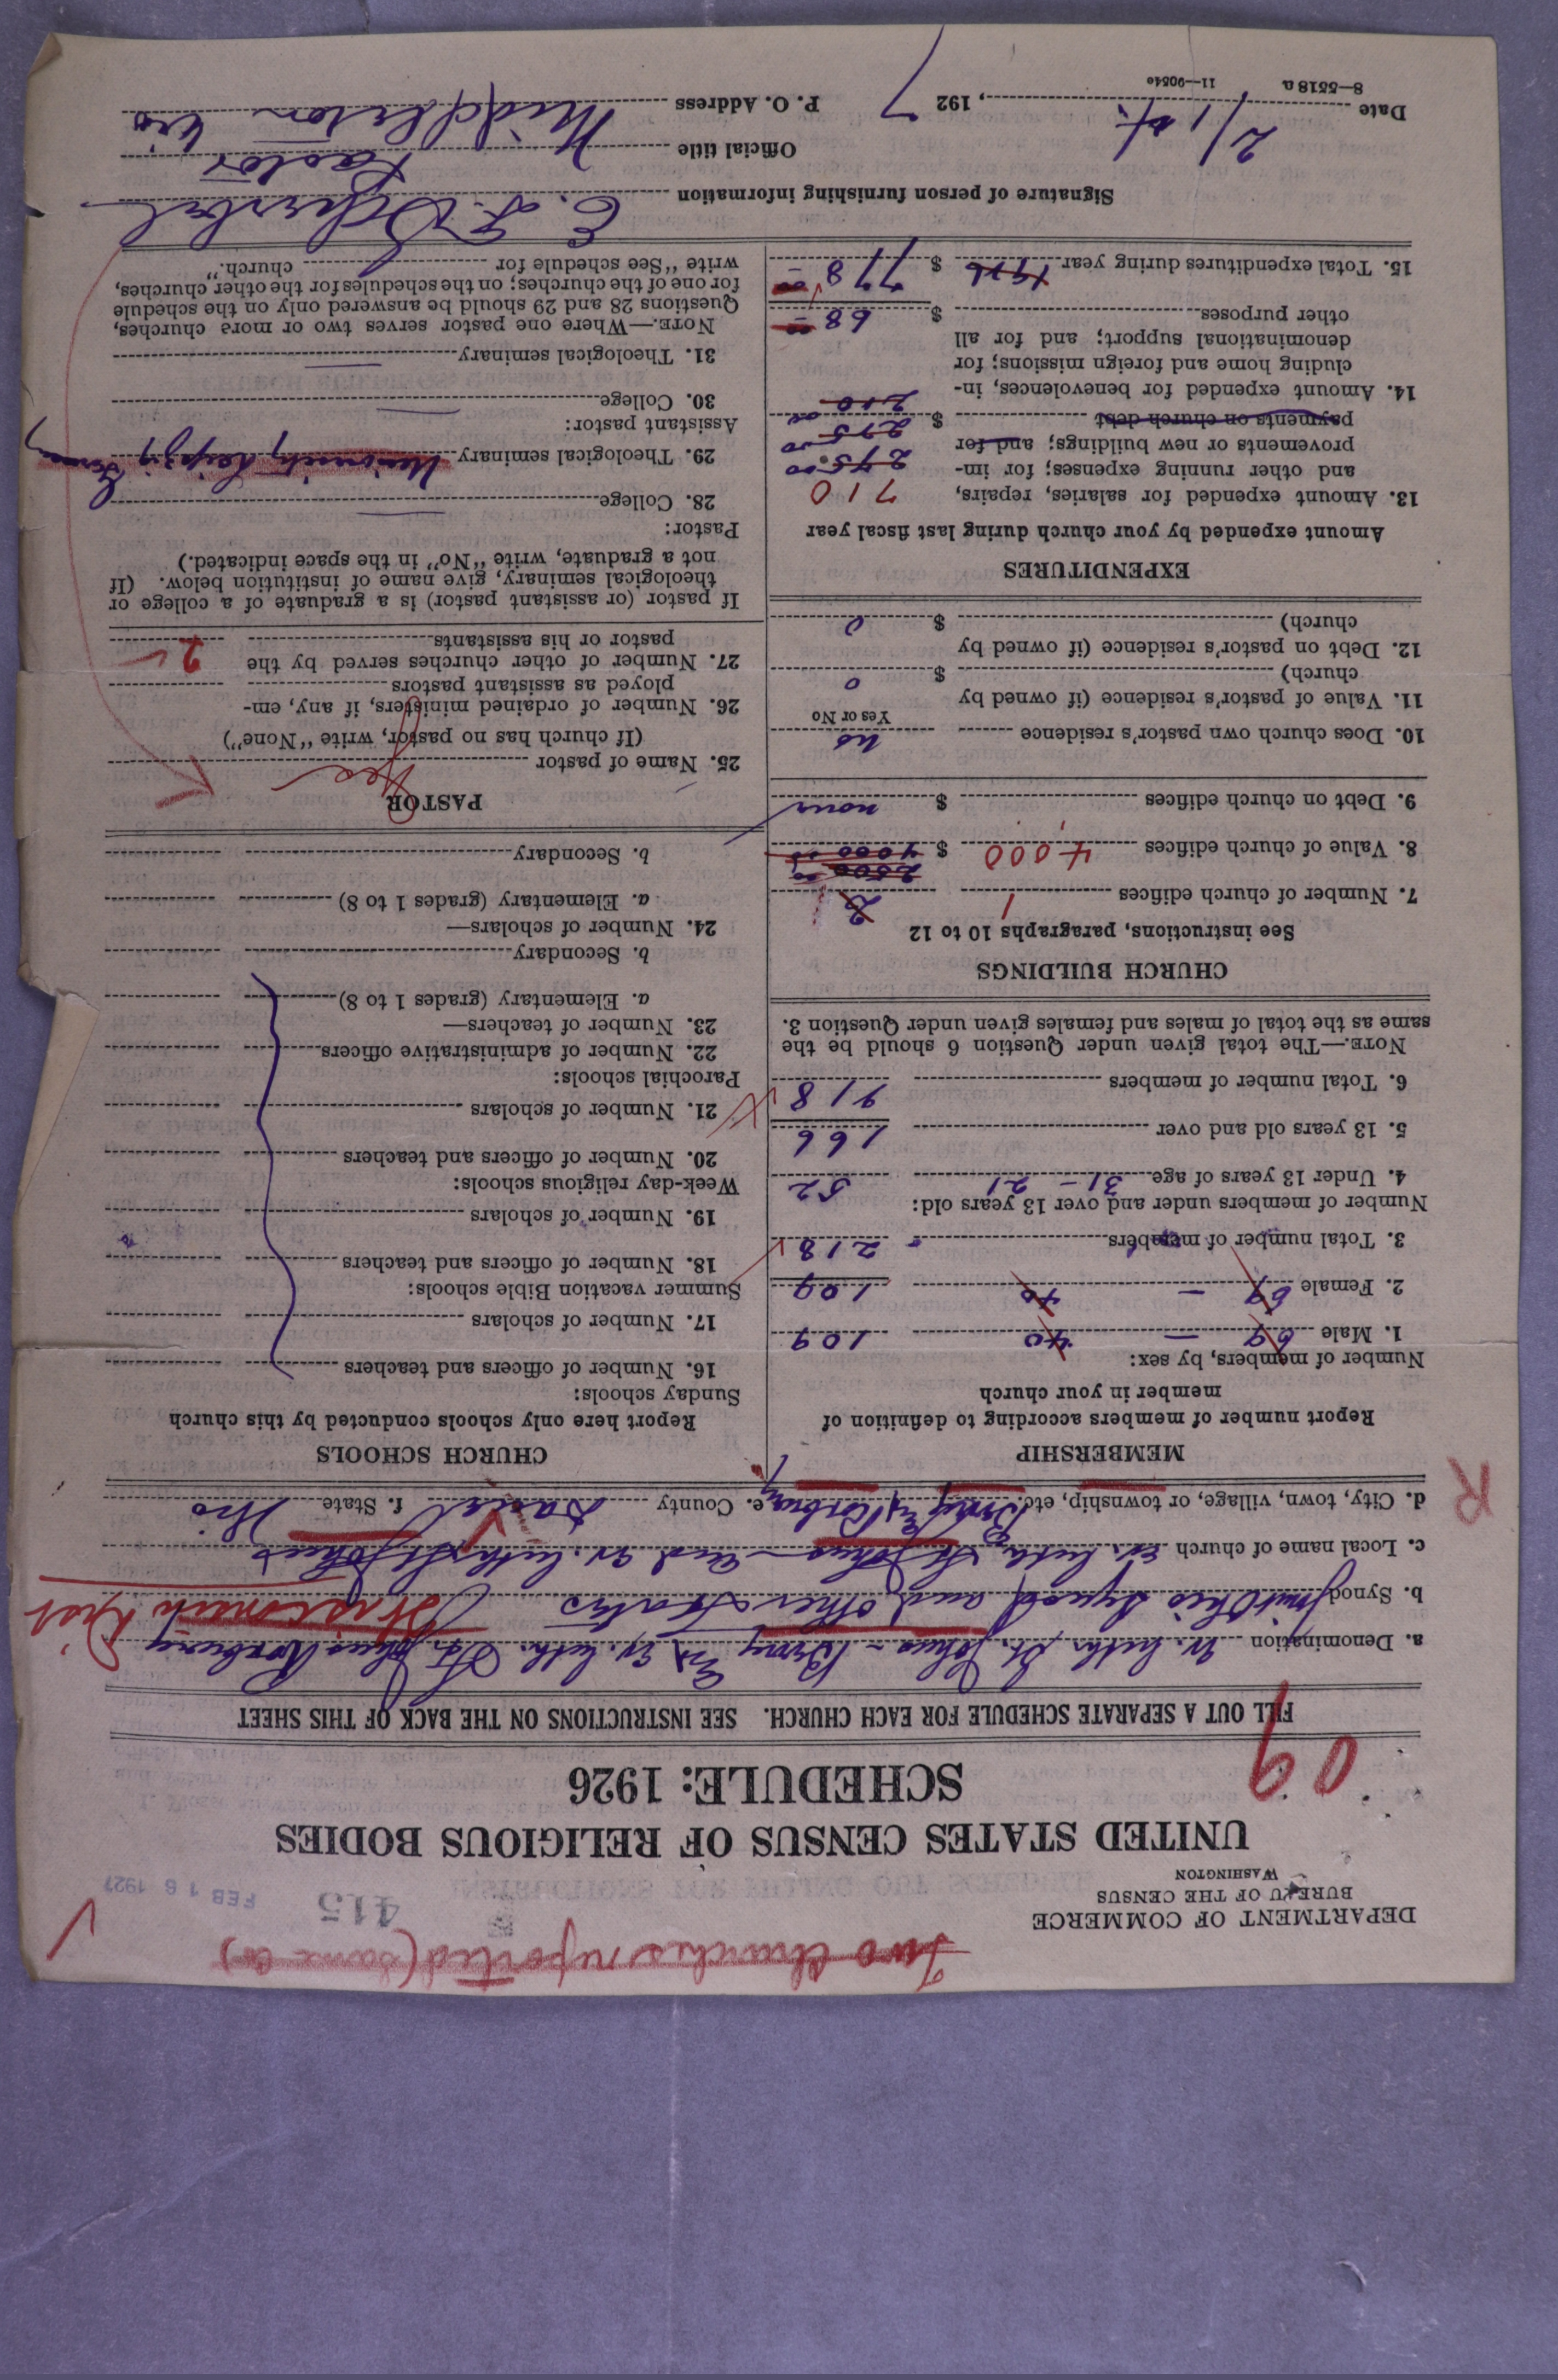 Two churches reported (same Co)
DEPARTMENT OF COMMERCE
BUREAU OF THE CENSUS
WASHINGTON
415
FEB 16 1927
UNITED STATES CENSUS OF RELIGIOUS BODIES
SCHEDULE: 1926
09
FILL OUT A SEPARATE SCHEDULE FOR EACH CHURCH. SEE INSTRUCTIONS ON THE BACK OF THIS SHEET
a. Denomination Ev. Luth. St. Johns - Berry Ev. Luth. St. Johns Roxbury
b. Synod Joint Ohio Synod and other States Wisconsin Dist
c. Local name of church Ev. Luth. St. Johns and Ev. Luth. St. Johns
d. City, town, village, or township, etc. Berry Roxbury e. County f. State Wis
R
MEMBERSHIP
Report number of members according to definition of
member in your church
Number of members, by sex:
1. Male 69 - 40 109
2. Female 69 - 40 109
3. Total number of members 218
Number of members under and over 13 years old:
4. Under 13 years of age 31 - 21 52
5. 13 years old and over 166
6. Total number of members 218
NOTE.—The total given under Question 6 should be the
same as the total of males and females given under Question 3.
CHURCH BUILDINGS
See instructions, paragraphs 10 to 12
7. Number of church edifices 1 2
2500 00
8. Value of church edifices 4,000 $ 4000 00
9. Debt on church edifices $ none
10. Does church own pastor's residence no
Yes or No
11. Value of pastor's residence (if owned by
church) $ 0
12. Debt on pastor's residence (if owned by
church) $ 0
EXPENDITURES
Amount expended by your church during last fiscal year
13. Amount expended for salaries, repairs, 710
and other running expenses; for im-
provements or new buildings; and for
payments on church debt $
14. Amount expended for benevolences, in-
cluding home and foreign missions; for
denominational support; and for all
other purposes $ 68 -
15. Total expenditures during year 1926 $ 778 -
CHURCH SCHOOLS
Report here only schools conducted by this church
Sunday schools:
16. Number of officers and teachers
17. Number of scholars
Summer vacation Bible schools:
18. Number of officers and teachers
19. Number of scholars
Week-day religious schools:
20. Number of officers and teachers
21. Number of scholars
Parochial schools:
22. Number of administrative officers
23. Number of teachers—
a. Elementary (grades 1 to 8)
b. Secondary
24. Number of scholars—
a. Elementary (grades 1 to 8)
b. Secondary
PASTOR
25. Name of pastor
(If church has no pastor, write "None")
26. Number of ordained ministers, if any, em-
ployed as assistant pastors
27. Number of other churches served by the
pastor or his assistants 2
If pastor (or assistant pastor) is a graduate of a college or
theological seminary, give name of institution below. (If
not a graduate, write "No" in the space indicated.)
Pastor:
28. College
29. Theological seminary University Leipzig Germany
Assistant pastor:
30. College
31. Theological seminary
NOTE.—Where one pastor serves two or more churches,
Questions 28 and 29 should be answered only on the schedule
for one of the churches; on the schedules for the other churches,
write "See schedule for church."
Signature of person furnishing information E. F.
Official title Pastor
Date 2/1 st. , 1927 P. O. Address Middleton Wis
8—5518 a 11—9054e